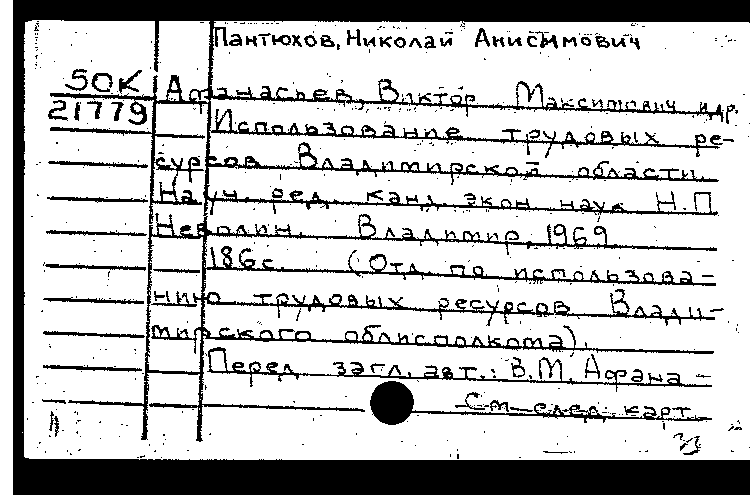 Пантюхов, Николай Анисимович
50К
21779
Афанасьев, Виктор Максимович и др.
Использование трудовых ре-
сурсов Владимирской области.
Науч. ред. канд. экон. наук Н.П.
Неволин. Владимир, 1969.
186с. (Отд. по использова-
нию трудовых ресурсов Влади-
мирского облисполкома).
Перед загл. авт.: В.М. Афана-
См след. карт.